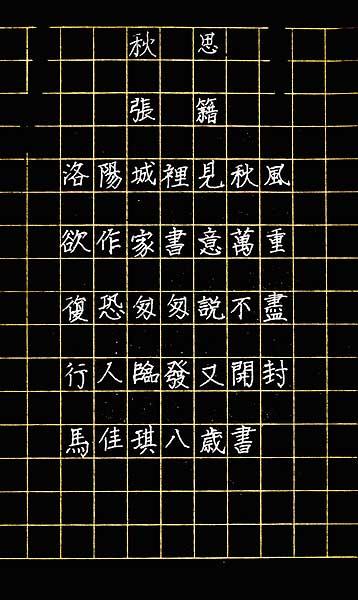 秋思
張籍
洛陽城裡見秋風
欲作家書意萬重
復恐匆匆説不盡
行人臨發又開封
馬佳琪八歲書